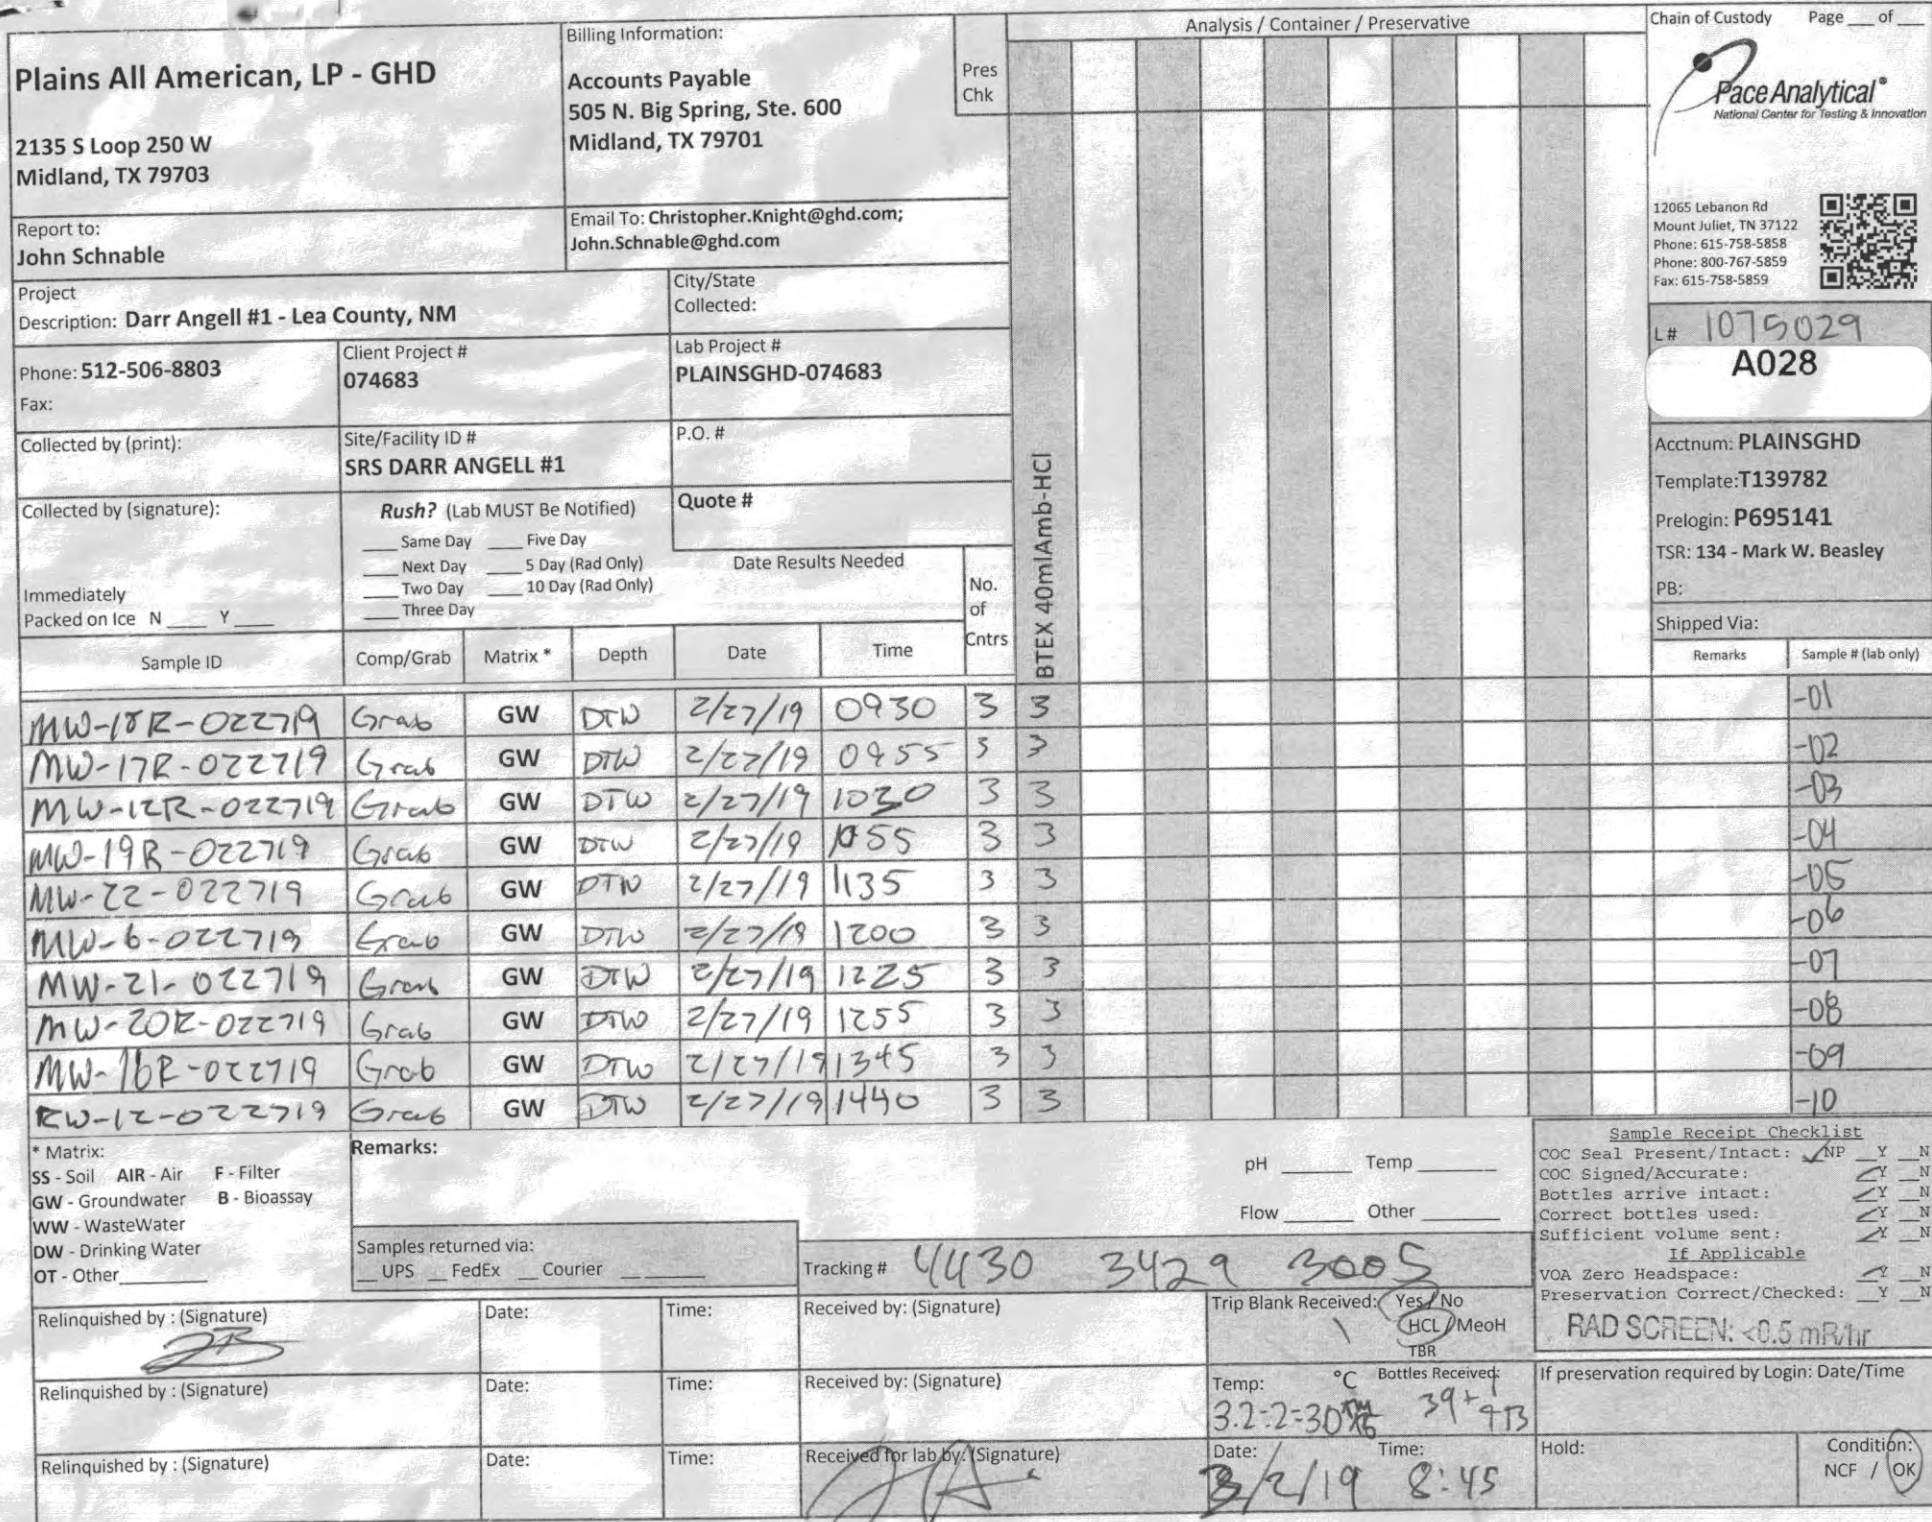 Plains All American, LP - GHD
2135 S Loop 250 W
Midland, TX 79703
Billing Information:
Accounts Payable
505 N. Big Spring, Ste. 600
Midland, TX 79701
Pres
Chk
Analysis / Container / Preservative
Chain of Custody Page ___ of ___
Pace Analytical®
National Center for Testing & Innovation
12065 Lebanon Rd
Mount Juliet, TN 37122
Phone: 615-758-5858
Phone: 800-767-5859
Fax: 615-758-5859
Report to:
John Schnable
Email To: Christopher.Knight@ghd.com;
John.Schnable@ghd.com
Project
Description: Darr Angell #1 - Lea County, NM
City/State
Collected:
L# 1075029
A028
Phone: 512-506-8803
Fax:
Client Project #
074683
Lab Project #
PLAINSGHD-074683
Collected by (print):
Site/Facility ID #
SRS DARR ANGELL #1
P.O. #
Acctnum: PLAINSGHD
Template:T139782
Prelogin: P695141
TSR: 134 - Mark W. Beasley
PB:
Shipped Via:
Collected by (signature):
Rush? (Lab MUST Be Notified)
___ Same Day ___ Five Day
___ Next Day ___ 5 Day (Rad Only)
___ Two Day ___ 10 Day (Rad Only)
___ Three Day
Quote #
Date Results Needed
Immediately
Packed on Ice N ____ Y ____
No.
of
Cntrs
BTEX 40mlAmb-HCl
Sample ID Comp/Grab Matrix * Depth Date Time Remarks Sample # (lab only)
MW-18R-022719 Grab GW DTW 2/27/19 0930 3 3 -01
MW-17R-022719 Grab GW DTW 2/27/19 0955 3 3 -02
MW-12R-022719 Grab GW DTW 2/27/19 1030 3 3 -03
MW-19R-022719 Grab GW DTW 2/27/19 1055 3 3 -04
MW-22-022719 Grab GW DTW 2/27/19 1135 3 3 -05
MW-6-022719 Grab GW DTW 2/27/19 1200 3 3 -06
MW-21-022719 Grab GW DTW 2/27/19 1225 3 3 -07
MW-20R-022719 Grab GW DTW 2/27/19 1255 3 3 -08
MW-16R-022719 Grab GW DTW 2/27/19 1345 3 3 -09
RW-12-022719 Grab GW DTW 2/27/19 1440 3 3 -10
* Matrix:
SS - Soil AIR - Air F - Filter
GW - Groundwater B - Bioassay
WW - WasteWater
DW - Drinking Water
OT - Other
Remarks:
pH ______ Temp ______
Flow ______ Other ______
Samples returned via:
__ UPS __ FedEx __ Courier ______
Tracking # 4430 3429 3005
Sample Receipt Checklist
COC Seal Present/Intact: ✓NP __Y __N
COC Signed/Accurate: ✓Y __N
Bottles arrive intact: ✓Y __N
Correct bottles used: ✓Y __N
Sufficient volume sent: ✓Y __N
If Applicable
VOA Zero Headspace: ✓Y __N
Preservation Correct/Checked: __Y __N
RAD SCREEN: <0.5 mR/hr
Relinquished by : (Signature) Date: Time: Received by: (Signature)
Trip Blank Received: Yes / No
HCL / MeoH
TBR
Relinquished by : (Signature) Date: Time: Received by: (Signature)
Temp: °C Bottles Received:
3.2-.2=3.0
If preservation required by Login: Date/Time
Relinquished by : (Signature) Date: Time: Received for lab by: (Signature)
Date: 3/2/19 Time: 8:45
Hold:
Condition:
NCF / OK